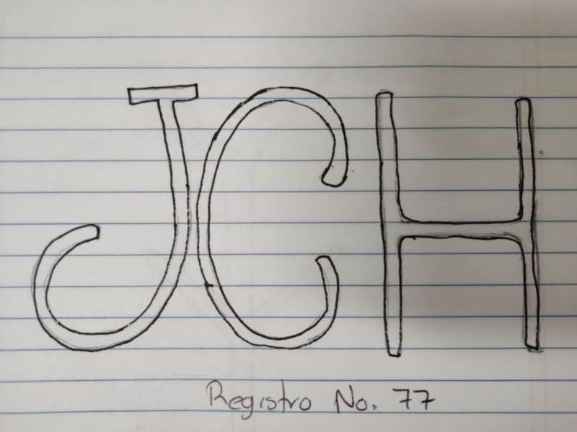 JCH
Registro No. 77